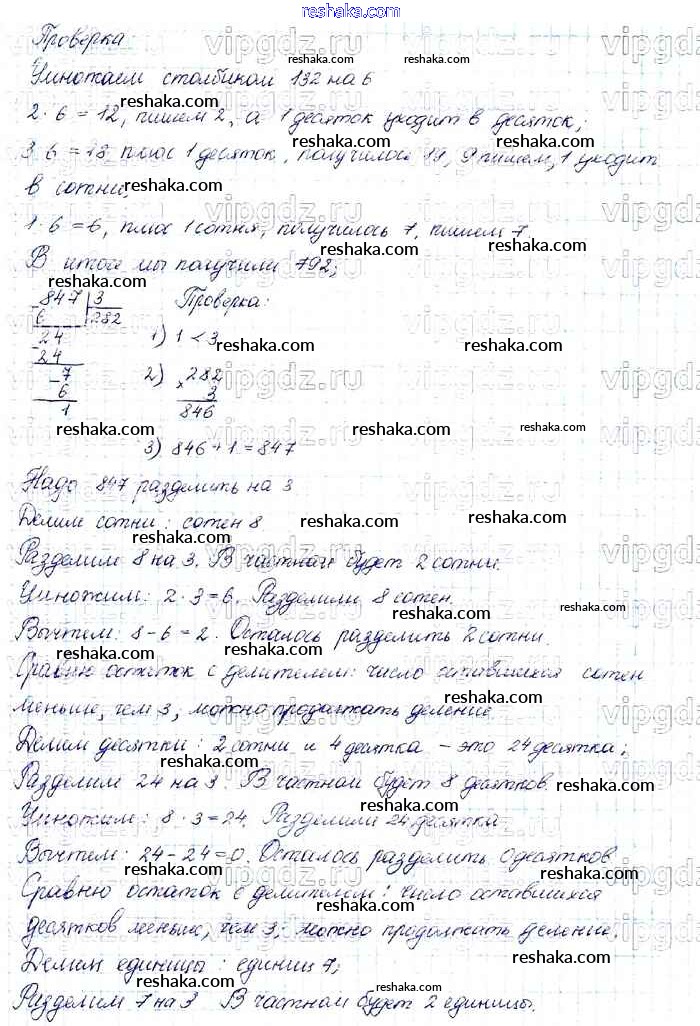 reshaka.com
Проверка:
Умножаем столбиком 132 на 6
2 · 6 = 12, пишем 2, а 1 десяток уходит в десяток;
3 · 6 = 18 плюс 1 десяток, получилось 19, 9 пишем, 1 уходит
в сотни;
1 · 6 = 6, плюс 1 сотня, получилось 7, пишем 7.
В итоге мы получили 792;
847 | 3 Проверка:
6 282
- 24 1) 1 < 3
24
- 7 2) × 282
6 3
1 846
3) 846 + 1 = 847
Надо 847 разделить на 3
Делим сотни: сотен 8
Разделим 8 на 3. В частном будет 2 сотни.
Умножим: 2 · 3 = 6. Разделили 8 сотен.
Вычтем: 8 - 6 = 2. Осталось разделить 2 сотни.
Сравню остаток с делителем: число оставшихся сотен
меньше, чем 3, можно продолжать деление.
Делим десятки: 2 сотни и 4 десятка - это 24 десятка;
Разделим 24 на 3. В частном будет 8 десятков.
Умножим: 8 · 3 = 24. Разделили 24 десятка
Вычтем: 24 - 24 = 0. Осталось разделить 0 десятков
Сравню остаток с делителем: число оставшихся
десятков меньше, чем 3; можно продолжить деление.
Делим единицы: единиц 7;
Разделим 7 на 3 В частном будет 2 единицы.